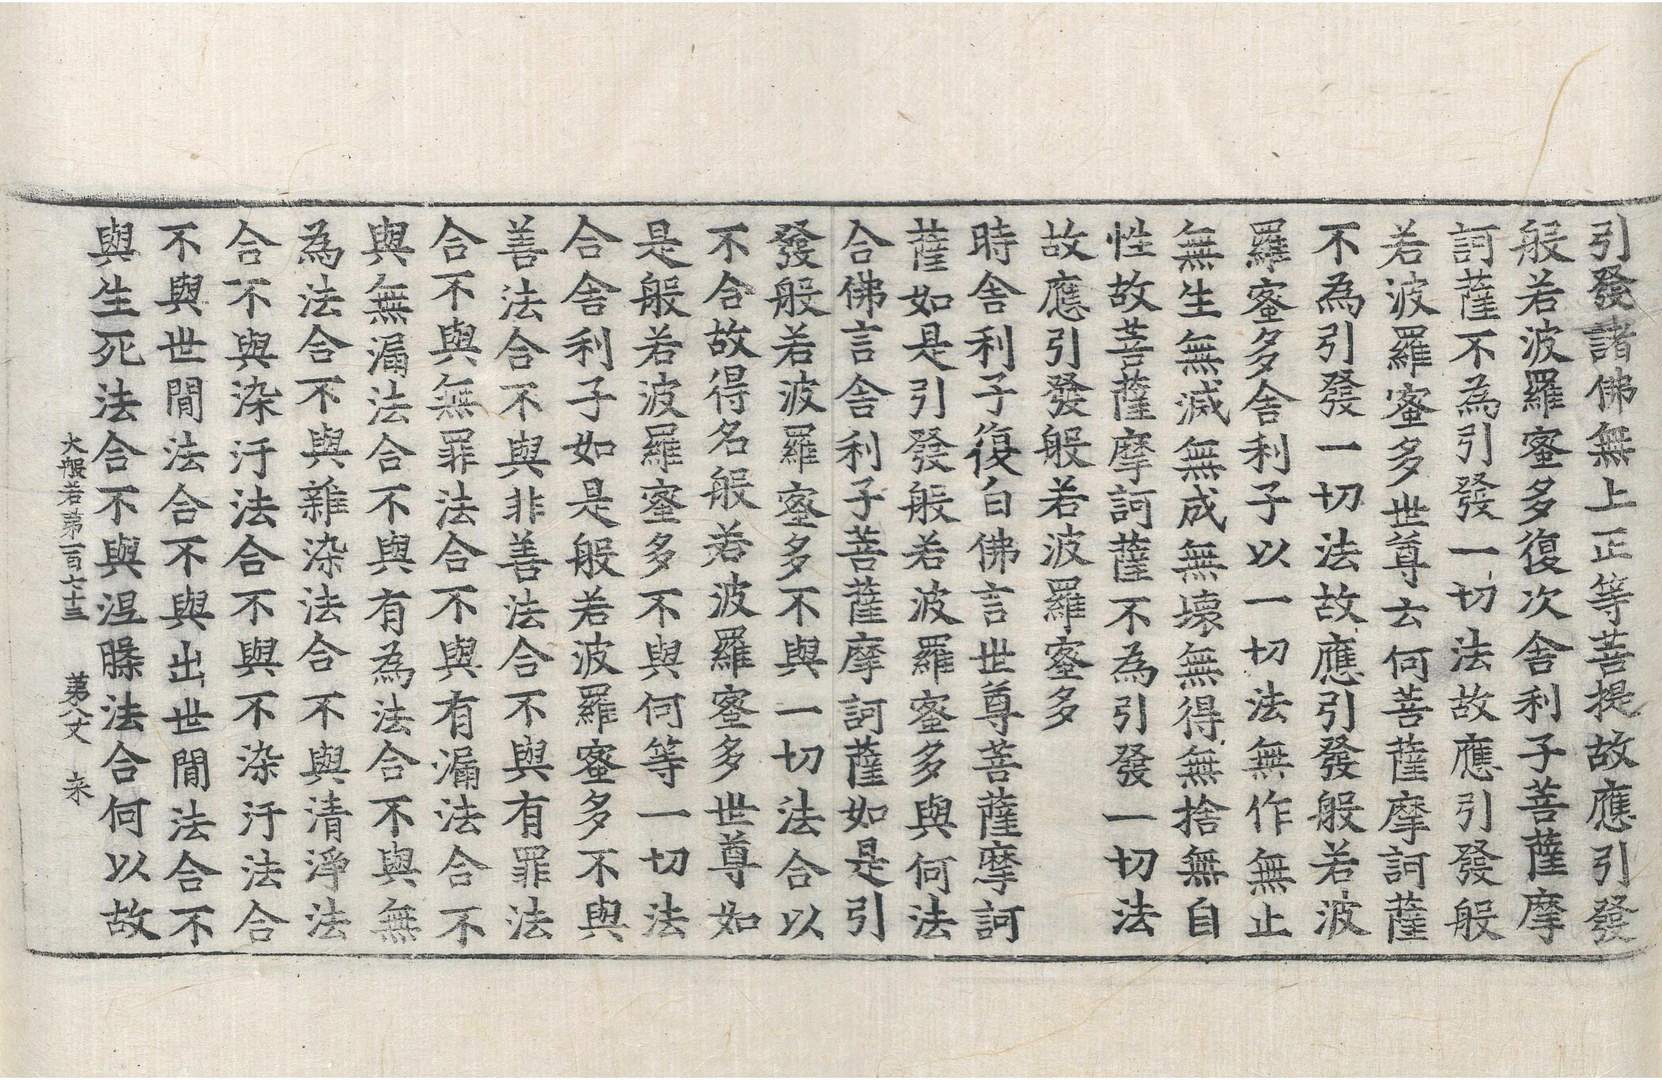 引發諸佛無上正等菩提故應引發
般若波羅蜜多復次舍利子菩薩摩
訶薩不為引發一切法故應引發般
若波羅蜜多世尊云何菩薩摩訶薩
不為引發一切法故應引發般若波
羅蜜多舍利子以一切法無作無止
無生無滅無成無壞無得無捨無自
性故菩薩摩訶薩不為引發一切法
故應引發般若波羅蜜多
時舍利子復白佛言世尊菩薩摩訶
薩如是引發般若波羅蜜多與何法
合佛言舍利子菩薩摩訶薩如是引
發般若波羅蜜多不與一切法合以
不合故得名般若波羅蜜多世尊如
是般若波羅蜜多不與何等一切法
合舍利子如是般若波羅蜜多不與
善法合不與非善法合不與有罪法
合不與無罪法合不與有漏法合不
與無漏法合不與有為法合不與無
為法合不與雜染法合不與清淨法
合不與染汙法合不與不染汙法合
不與世間法合不與出世間法合不
與生死法合不與涅槃法合何以故
大般若第一百七十三 第八丈 来